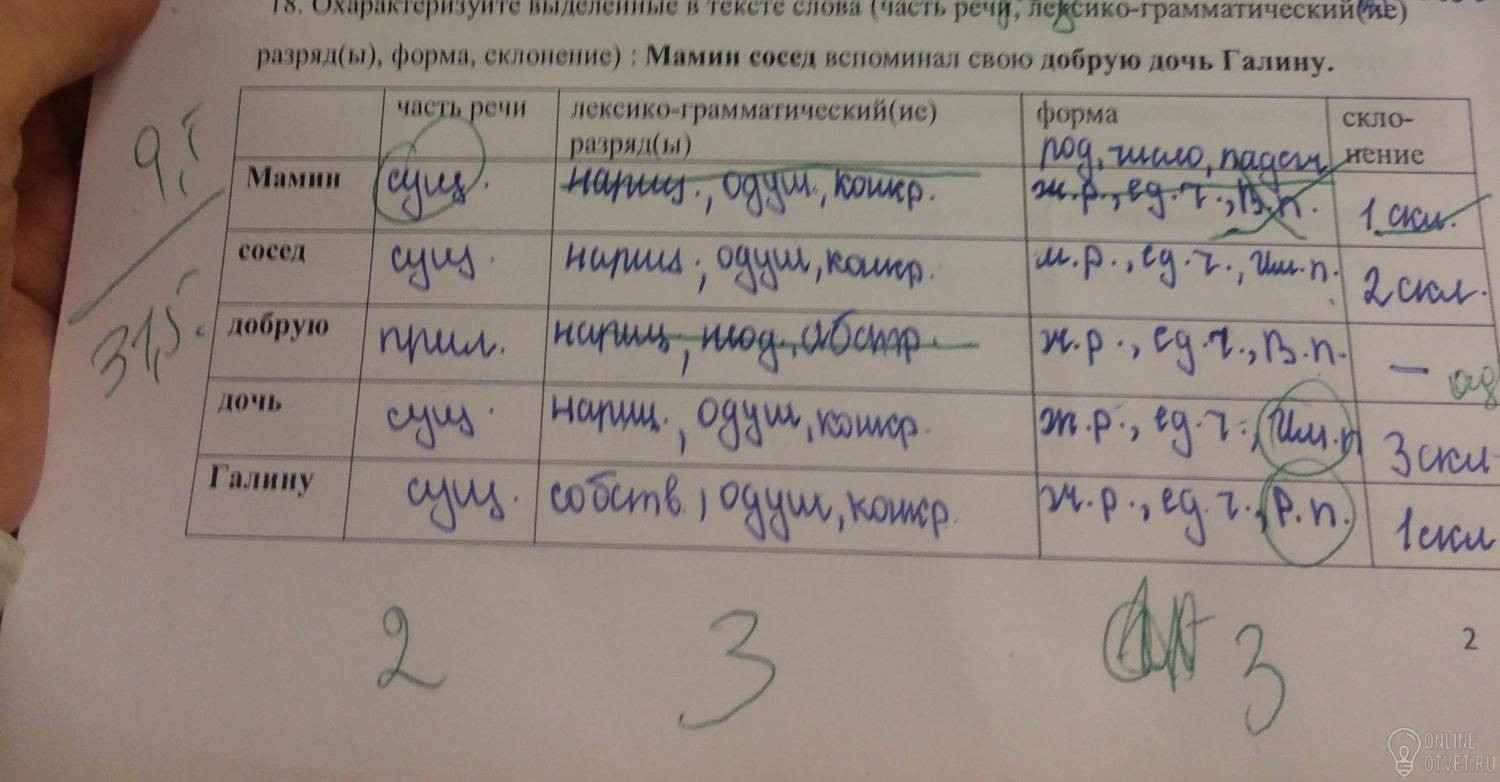 18. Охарактеризуйте выделенные в тексте слова (часть речи, лексико-грамматический(ие)
разряд(ы), форма, склонение) : Мамин сосед вспоминал свою добрую дочь Галину.
часть речи лексико-грамматический(ие) разряд(ы) форма род, число, падеж скло-нение
Мамин сущ. нариц., одуш, конкр. ж.р., ед.ч., В.п. 1 скл.
сосед сущ. нариц., одуш, конкр. м.р., ед.ч., Им.п. 2 скл.
добрую прил. нариц, абстр. ж.р., ед.ч., В.п. —
дочь сущ. нариц., одуш, конкр. ж.р., ед.ч., Им.п 3 скл
Галину сущ. собств, одуш, конкр. ж.р., ед.ч., Р.п. 1 скл
31,5
2 3 3
2
ONLINE
OTVET.RU